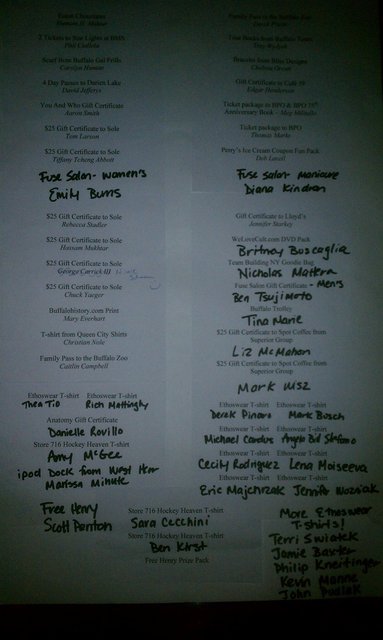 2 Tickets to Star Lights at BMS
Scarf from Buffalo Gal Frills
Carolyn Human
4 Day Passes to Darien Lake
David Jefferys
You And Who Gift Certificate
Aaron Smith
$25 Gift Certificate to Sole
Tom Larson
$25 Gift Certificate to Sole
Tiffany Tcheng Abbott
Fuse Salon - Women's
Emily Burns
$25 Gift Certificate to Sole
Rebecca Stadler
$25 Gift Certificate to Sole
Hassam Mukhtar
$25 Gift Certificate to Sole
George Carrick III
$25 Gift Certificate to Sole
Chuck Yaeger
Buffalohistory.com Print
Mary Everhart
T-shirt from Queen City Shirts
Christian Nole
Family Pass to the Buffalo Zoo
Caitlin Campbell
Ethoswear T-shirt Ethoswear T-shirt
Thea Tio Rich Mattingly
Anatomy Gift Certificate
Danielle Rovillo
Store 716 Hockey Heaven T-shirt
Amy McGee
ipod Dock from West Herr
Marissa Minute
Free Henry
Scott Penton
Family Pass to the Buffalo Zoo
Tour Books from Buffalo Tours
Bracelet from Bliss Designs
Chelsea Orcutt
Gift Certificate to Cafe 59
Edgar Henderson
Ticket package to BPO & BPO 75th
Anniversary Book - Meg
Ticket package to BPO
Thomas Marks
Perry's Ice Cream Coupon Fun Pack
Deb Lasell
Fuse Salon - Manicure
Diana Kindron
Gift Certificate to Lloyd's
Jennifer Starkey
WeLoveCult.com DVD Pack
Britney Buscaglia
Team Building NY Goodie Bag
Nicholas Mattera
Fuse Salon Gift Certificate - Men's
Ben Tsujimoto
Buffalo Trolley
Tina Marie
$25 Gift Certificate to Spot Coffee from
Superior Group
Liz McMahon
$25 Gift Certificate to Spot Coffee from
Superior Group
Mark Wisz
Ethoswear T-shirt Ethoswear T-shirt
Derek Pinaro Mark Busch
Ethoswear T-shirt Ethoswear T-shirt
Michael Cardus Angelo
Ethoswear T-shirt Ethoswear T-shirt
Cecily Rodriguez Lena Moiseeva
Ethoswear T-shirt Ethoswear T-shirt
Eric Majchrzak Jennifer Wozniak
Store 716 Hockey Heaven T-shirt
Sara Cecchini
Store 716 Hockey Heaven T-shirt
Ben Kirst
Free Henry Prize Pack
More Ethoswear
T-shirts!
Terri Swiatek
Jamie Baxter
Philip Kneitinger
Kevin Manne
John Pudlak